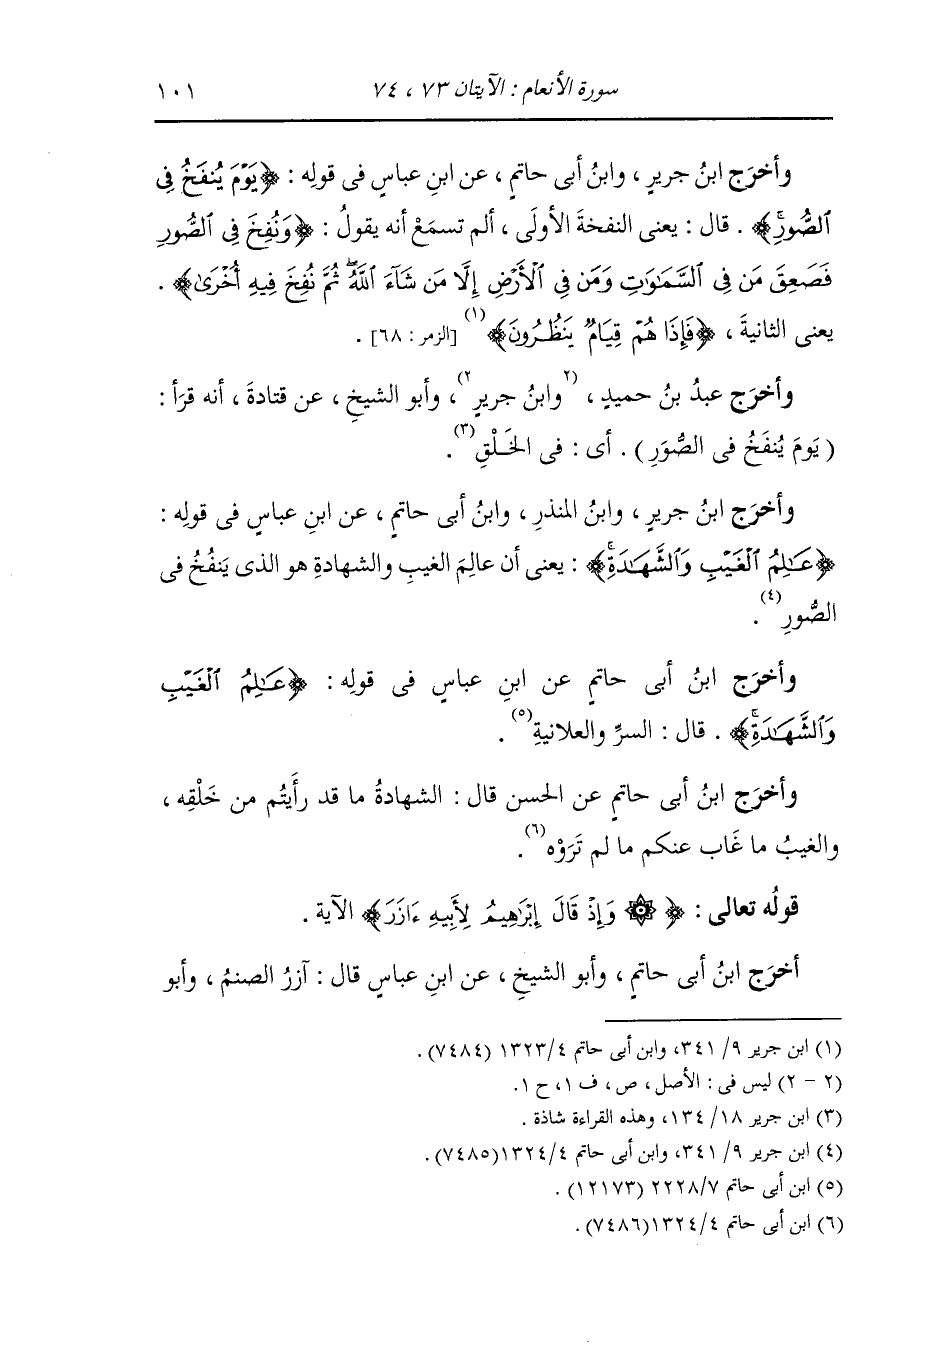 سورة الأنعام : الآيتان ٧٣ ، ٧٤ ١٠١
وأخرَج ابنُ جريرٍ ، وابنُ أبى حاتمٍ ، عن ابنِ عباسٍ فى قولِه : ﴿يَوْمَ يُنفَخُ فِى
ٱلصُّورِۚ﴾ . قال : يعنى النفخةَ الأولَى ، ألم تسمَعْ أنه يقولُ : ﴿وَنُفِخَ فِى ٱلصُّورِ
فَصَعِقَ مَن فِى ٱلسَّمَٰوَٰتِ وَمَن فِى ٱلْأَرْضِ إِلَّا مَن شَآءَ ٱللَّهُۖ ثُمَّ نُفِخَ فِيهِ أُخْرَىٰ﴾ .
يعنى الثانيةَ ، ﴿فَإِذَا هُمْ قِيَامٌ يَنظُرُونَ﴾(١) [الزمر : ٦٨] .
وأخرَج عبدُ بنُ حميدٍ ، (٢وابنُ جريرٍ٢) ، وأبو الشيخِ ، عن قتادةَ ، أنه قرَأ :
( يَومَ يُنفَخُ فى الصُّوَرِ ) . أى : فى الخَلْقِ(٣) .
وأخرَج ابنُ جريرٍ ، وابنُ المنذرِ ، وابنُ أبى حاتمٍ ، عن ابنِ عباسٍ فى قولِه :
﴿عَٰلِمُ ٱلْغَيْبِ وَٱلشَّهَٰدَةِۚ﴾ : يعنى أن عالِمَ الغيبِ والشهادةِ هو الذى يَنفُخُ فى
الصُّورِ(٤) .
وأخرَج ابنُ أبى حاتمٍ عن ابنِ عباسٍ فى قولِه : ﴿عَٰلِمُ ٱلْغَيْبِ
وَٱلشَّهَٰدَةِۚ﴾ . قال : السرِّ والعلانيةِ(٥) .
وأخرَج ابنُ أبى حاتمٍ عن الحسن قال : الشهادةُ ما قد رأَيتُم من خَلْقِه ،
والغيبُ ما غَاب عنكم ما لم تَرَوْه(٦) .
قولُه تعالى : ﴿ ۞ وَإِذْ قَالَ إِبْرَٰهِيمُ لِأَبِيهِ ءَازَرَ﴾ الآية .
أخرَج ابنُ أبى حاتمٍ ، وأبو الشيخِ ، عن ابنِ عباسٍ قال : آزرُ الصنمُ ، وأبو
(١) ابن جرير ٩/ ٣٤١، وابن أبى حاتم ١٣٢٣/٤ (٧٤٨٤) .
(٢ - ٢) ليس فى : الأصل ، ص ، ف ١، ح ١.
(٣) ابن جرير ١٨/ ١٣٤، وهذه القراءة شاذة .
(٤) ابن جرير ٩/ ٣٤١، وابن أبى حاتم ١٣٢٤/٤(٧٤٨٥) .
(٥) ابن أبى حاتم ٢٢٢٨/٧ (١٢١٧٣) .
(٦) ابن أبى حاتم ١٣٢٤/٤(٧٤٨٦) .